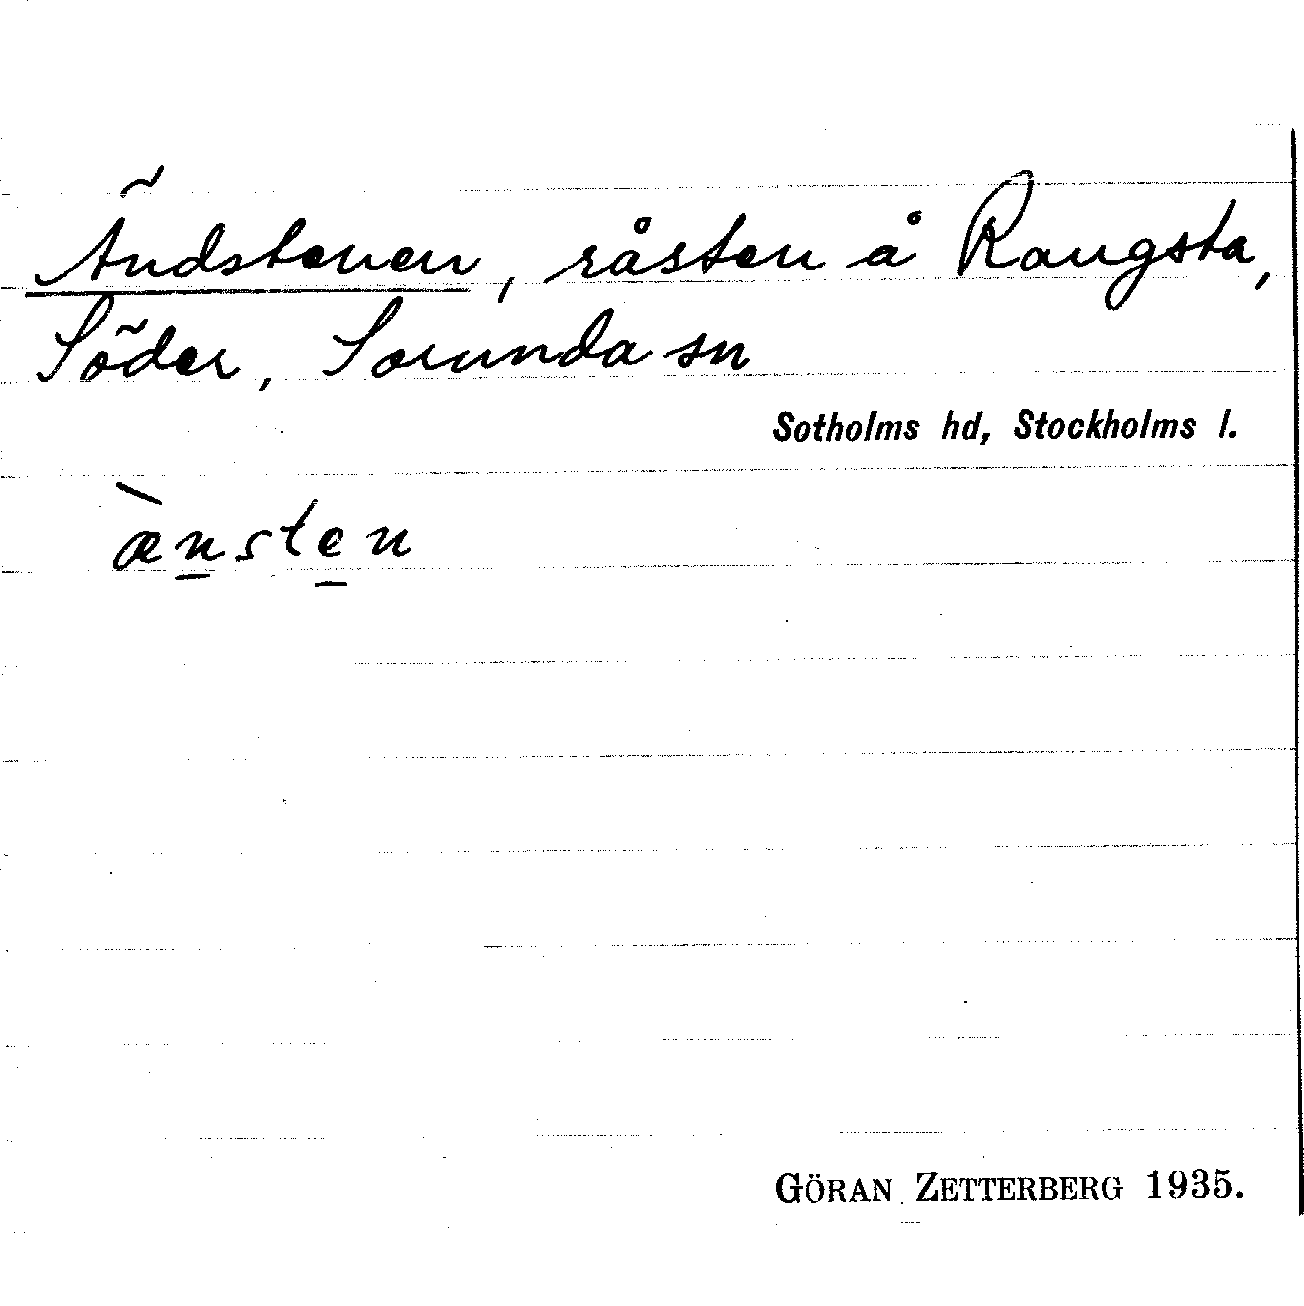 Ändstenen, råsten å Rangsta,
Söder, Sorunda sn
Sotholms hd, Stockholms l.
ænsten
GÖRAN ZETTERBERG 1935.